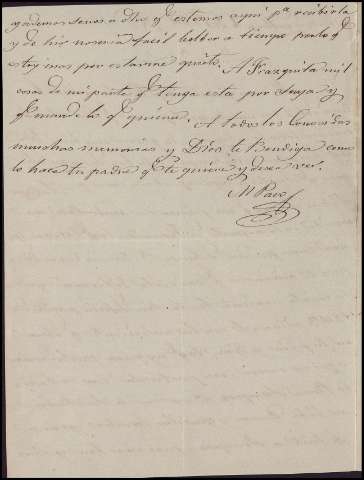 ayudemos suvos a dha qe estemos aqui pa recibirla
y de hir no seria facil bolber a tiempo por lo qe
estoy mas por estarme quieto. A Frazquita mil
cosas de mi parte qe tenga esta por suya y
qe mande lo qe quiera. A todos los Conocidos
muchas memorias y Dios te Bendiga como
lo hace tu padre qe te quiere y desea ver.
M Paez